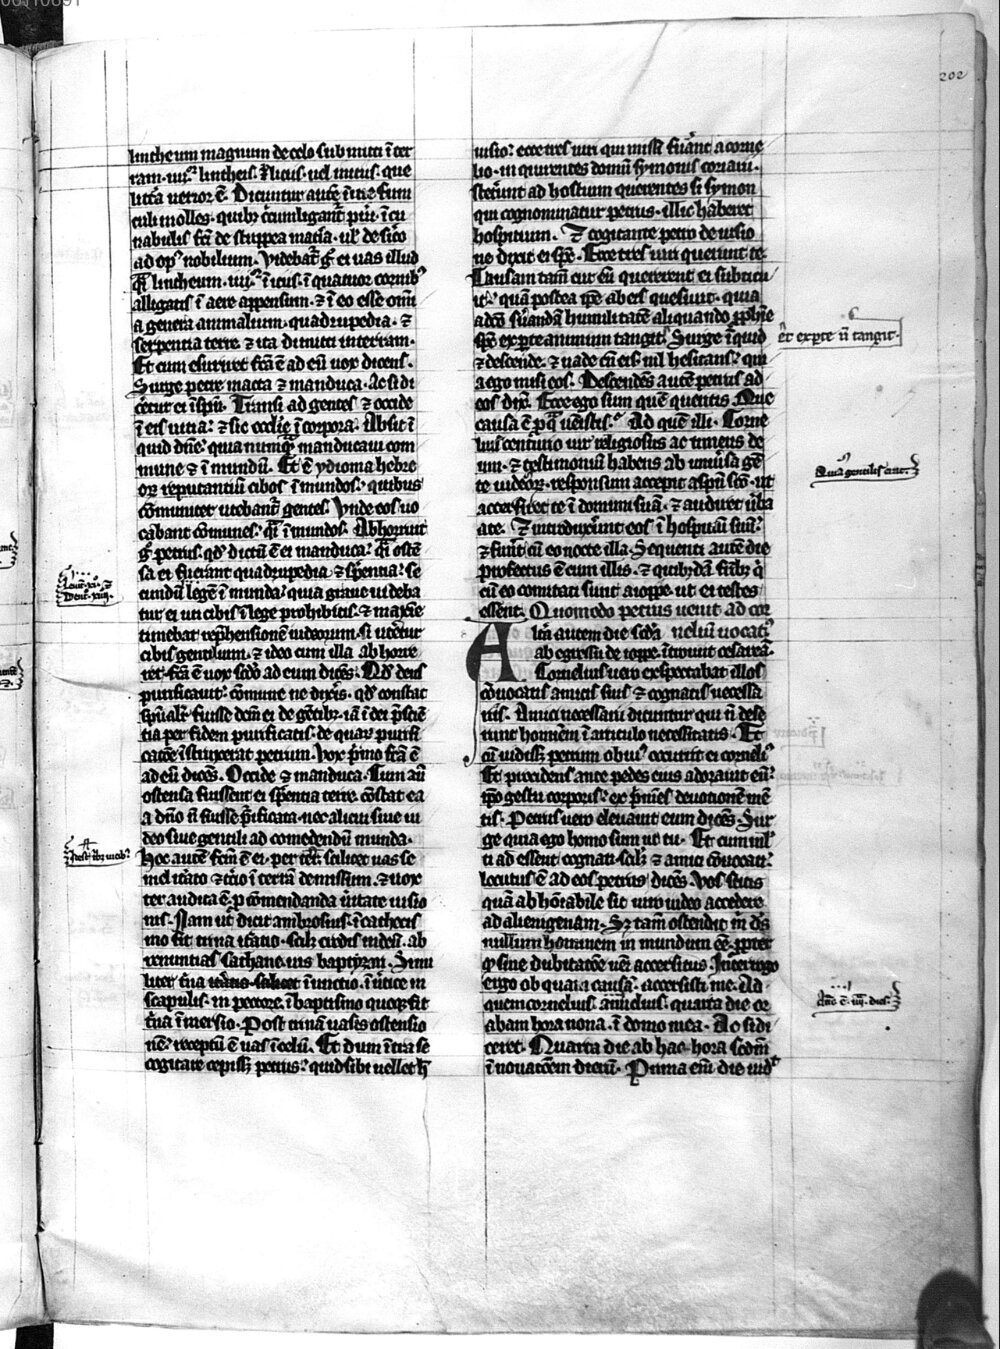 202
lintheum magnum de celo submitti ī ter
ram. iiii.
culi molles. quibꝫ
nabulis
ad opꝰ nobilium. Videbat̄ g̊ ei uas illud
lintheum. iiii. ī quatuor
alligatis ī aere appensum. ⁊ ī eo esse om̄
a genera animalium. quadrupedia. ⁊
serpentia terre. ⁊ ita dimitti in terram.
Et cum esuriret fc̄a ē ad eū uox dicens.
Surge petre macta ⁊ manduca. Ac si di
ceret ei
ī eis uitia: ⁊ sic ecclīe ī corpora. Absit ī
quid dn̄e. quia nunq̄ manducaui com
mune ⁊ ī mundū. Et ē ydioma hebre
oꝝ reputantiū cibos ī mundos. quibus
cōmuniter utebant̄ gentes. Vnde eos uo
cabant cōmunes. ī mundos. Abhorruit
g̊ petrus. qd̓ dictū ē ei manduca.
sa ei fuerant quadrupedia ⁊ sp̄entia. se
cundū legē ī munda. quia graue uideba
tur ei uti cibis ī lege prohibitis. ⁊ maxīe
timebat rep̄hensionē iudeorum. si uteret̄
cibis gentilium. ⁊ ideo cum illa abhorre
ret. fc̄a ē uox sc̄do ad eum dicēs. Qd̓ deus
purificauit. cōmune ne dixīs. qd̓ constat
tia per fidem purificatis. de quaꝝ purifi
catōe petrum. Vox p̄mo fc̄a ē
ad eū dicēs. Occide ⁊ manduca. Cum aū
ostensa fuissent ei sp̄entia terre. cōstat ea
a dn̄o n̄ fuisse p̄ificata. nec alicui siue iu
deo siue gentili ad comedendū munda.
Hoc autē fc̄m ē ei. per ter̄. scilicet uas se
mel ⁊ ī terra demissum. ⁊ uox
ter audita ē. ꝓ cōmendanda ūitate uisio
nis. Nam ut dicit ambrosius. ī cathecis
mo fit trina
renuntias sathane. uis baptizari. Simi
liter t̄na ī unctio. ī ūtice in
scapulis. in pectore. ī baptismo quoqꝫ fit
t̄na īmersio. Post trinā uasis ostensio
nē. receptū ē uas ī celū. Et dum ītra se
cogitare cepissꝫ petrus. quid sibi uellet h̄
uisio. ecce tres uiri qui missi fūant a corne
lio. inquirentes domū symonis coriarii.
stetūnt ad hostium querentes si symon
qui cognominatur petrus. illic haberet
hospitium. Et cogitante petro de uisio
ne dixit ei sp̄c. Ecce tres uiri querunt te.
Causam tam̄ cur eū quererent ei subticu
it. quā postea ip̄e ab eis quesiuit. quia
ad cō̄seruandā humilitatē aliquando ꝓph̄ie
sp̄c ex parte animum tangit. Surge īquid
⁊ descende. ⁊ uade cū eis. nil hesitans. qui
a ego misi eos. Descendēs autē petrus ad
eos dix̄. Ecce ego sum quē queritis. Que
causa ē ꝓpt̄ q̄ uēistis. Ad quē illi. Corne
lius centurio uir religiosus ac timens de
um. ⁊ testimoniū habens ab uniūsa gē
te iudeoꝝ. responsum accepit a sp̄u sc̄o. ut
accersiret te ī domum suā. ⁊ audiret ūba
a te. Et introduxūnt eos ī hospitiū suū.
⁊ fuer̄t cū eo nocte illa. Sequenti autē die
profectus ē cum illis. ⁊ quibꝫdā fr̄ibꝫ q̄
cū eo comitati sunt a ioppe. ut ei testes
essent. Quomodo petrus uenit ad cor
Altā autem die sc̄da nelium uocatꝰ
ab egressu de ioppe. ītrouit cesareā.
Cornelius uero exspectabat illos
cōuocatis amicis suis ⁊ cognatis necessa
riis. Amici necessarii dicuntur qui n̄ dese
runt hominem ī articulo necessitatis. Et
cū uidissꝫ petrum obuiꝰ occurrit ei cornelꝰ
Et procidens ante pedes eius adorauit eū.
ip̄o gestu corporis. ex p̄mens deuotionē mē
tis. Petrus uero eleuauit eum dicēs. Sur
ge quia ego homo sum ut tu. Et cum
ti adessent cognati ⁊ amici cōuocati.
locutus ē ad eos petrus dicēs. Vos scitis
quā abhōrabile sit uiro iudeo accedere
ad alienigenam. Sꝫ tam̄ ostendit m̄ ds̄
nullum hominem in mundum eē. ꝓpter
qd̓ sine dubitatōe uēi accersitus. Interrogo
ergo ob quam causā accersisti me. Ad
quem cornelius. quarta die or
abam hora nona. ī domo mea. Ac si di
ceret. Quarta die ab hac hora
ī nouatōem dictū. Prima em̄ die uidᵗ
Leuit. xi. ⁊
Deut. xiiii.
et ex parte n̄ tangit.
Quia gentilis erat.